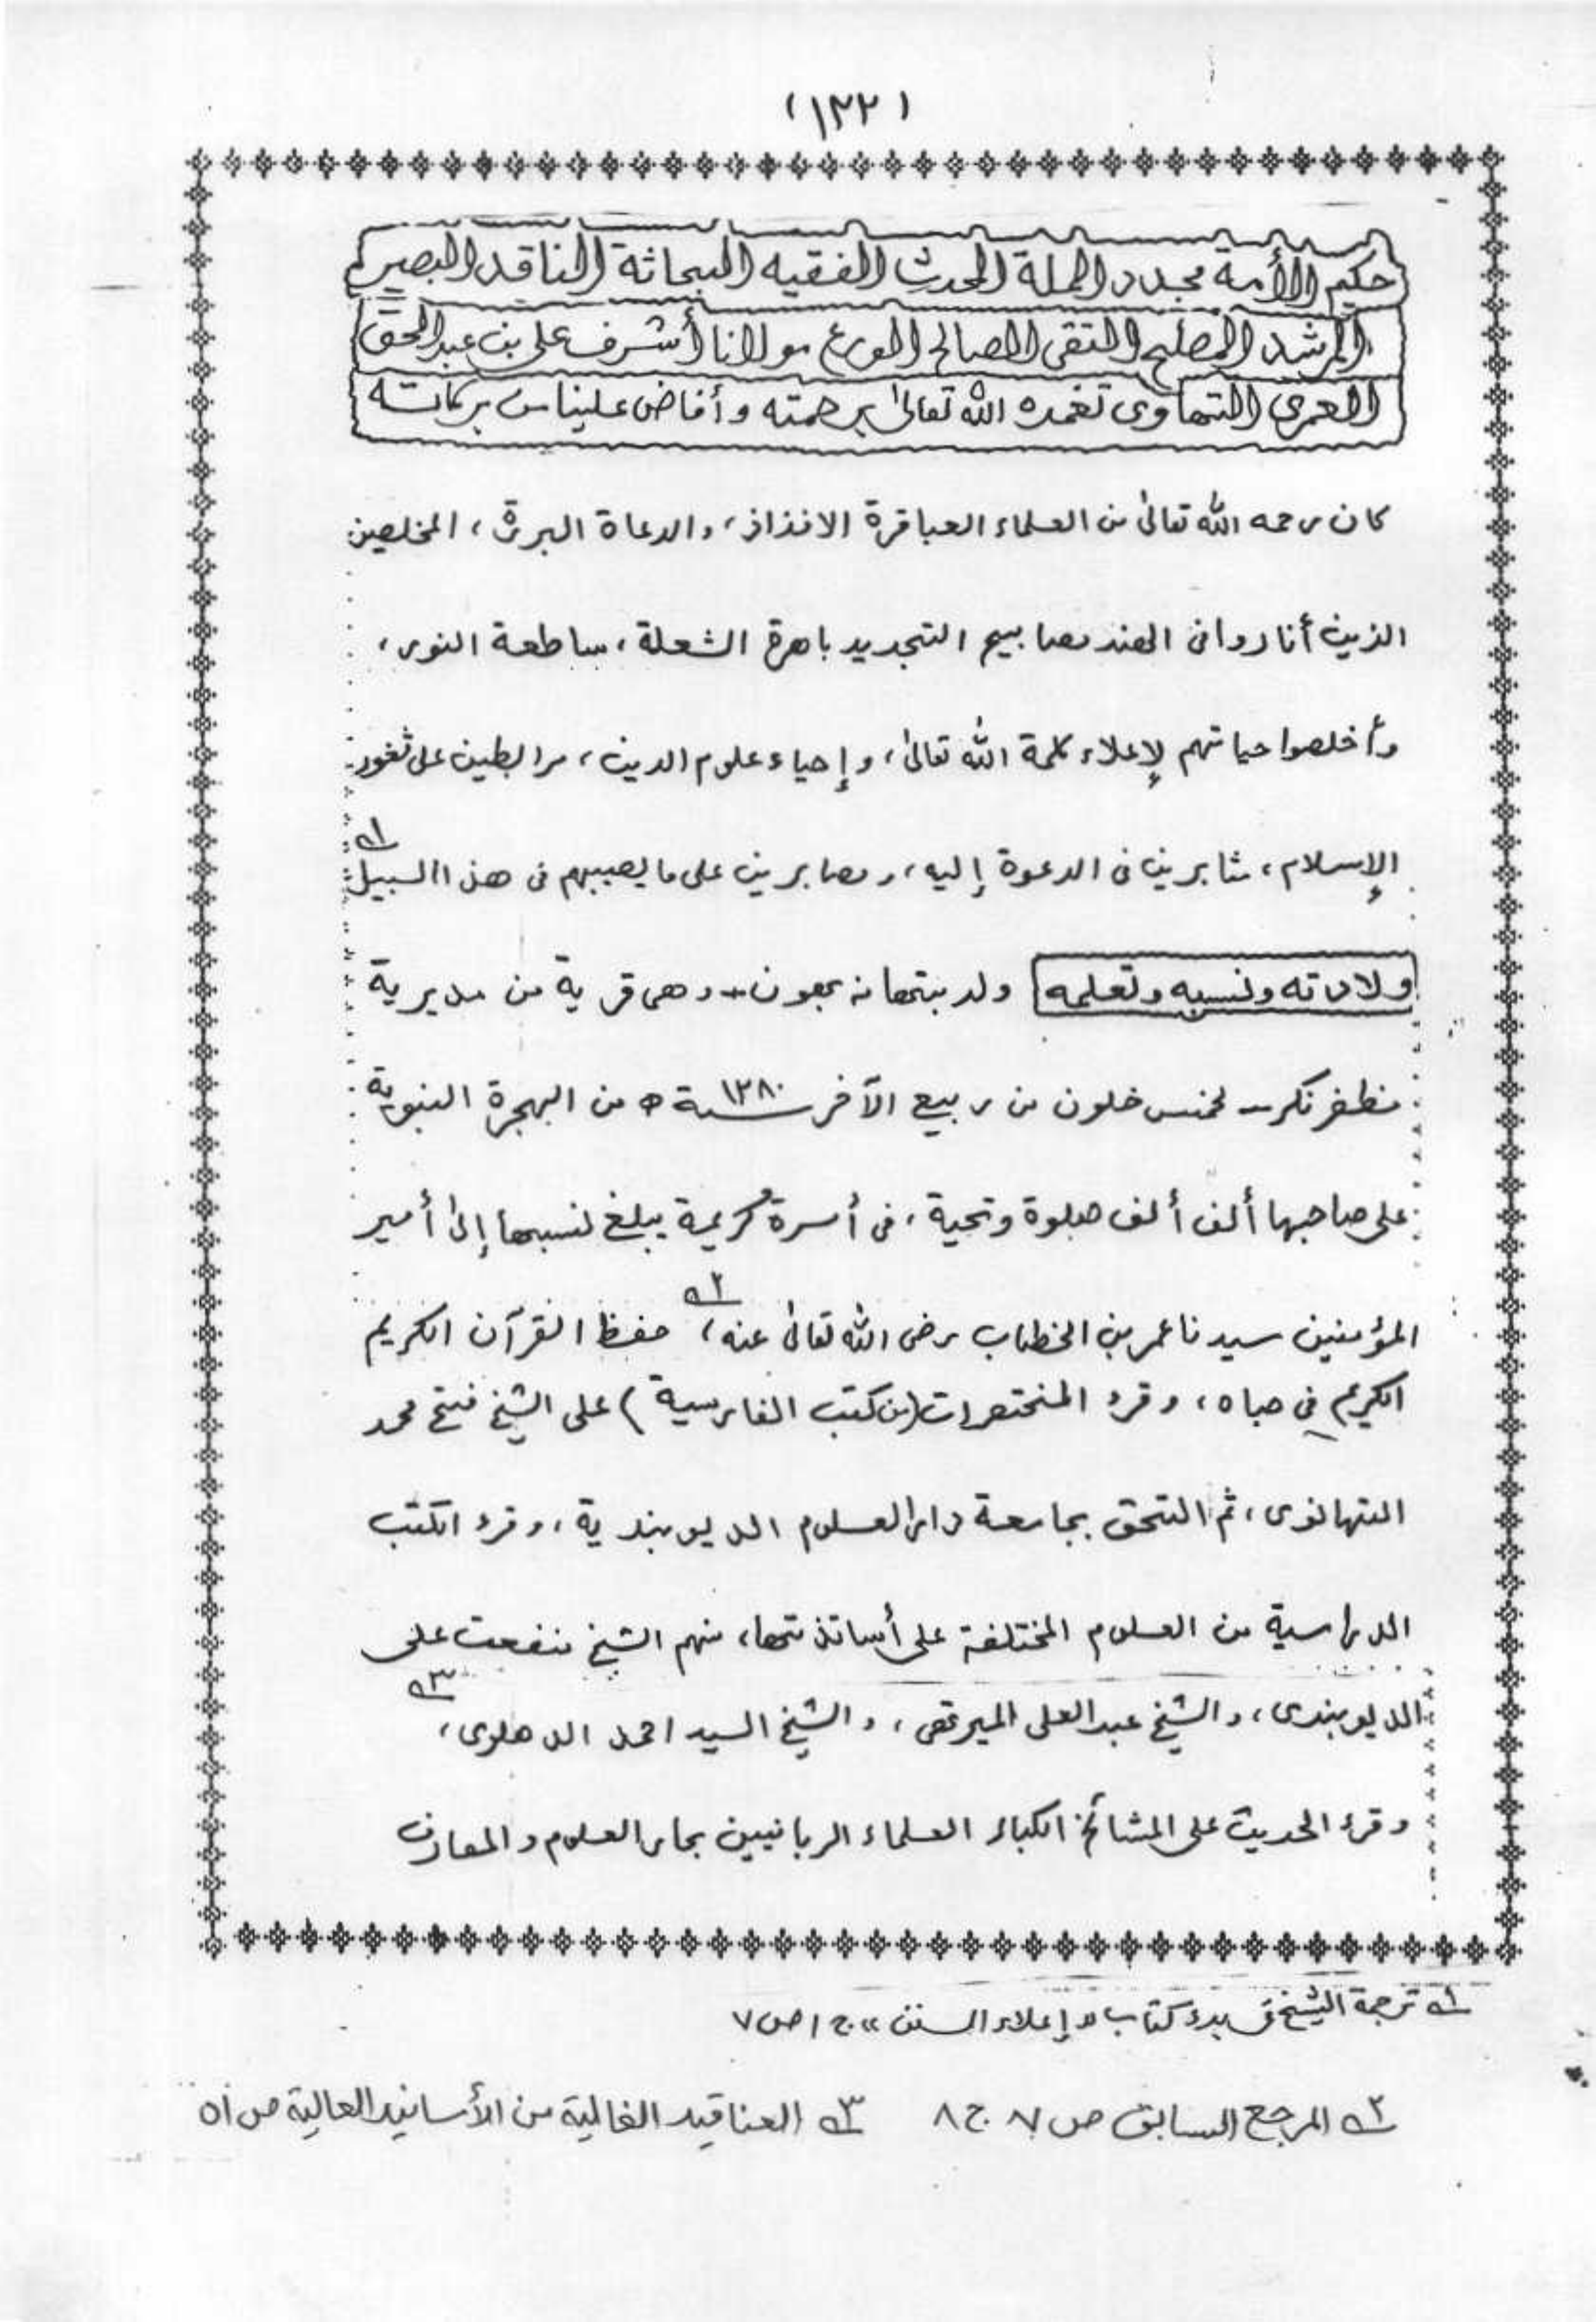 (١٢٢)
حكيم الأمة مجدد الملة المحدث الفقيه البحاثة الناقد البصير
المرشد المصلح التقى الصالح الورع مولانا أشرف على بن عبد الحق
العمرى التهاوى تغمده الله تعالىٰ برحمته وأفاض علينا من بركاته
كان رحمه الله تعالىٰ من العلماء العباقرة الافذاذ، والدعاة البررة، المخلصين
الذين أناروا فى الهند مصابيح التجديد باهرة الشعلة، ساطعة النور،
وأخلصوا حياتهم لإعلاء كلمة الله تعالىٰ، وإحياء علوم الدين، مرابطين على ثغور
الإسلام، مثابرين فى الدعوة إليه، ومصابرين على ما يصيبهم فى هذا السبيل ١ـه
ولادته ونسبه وتعلمه ولد بتهانه بهون - وهى قرية من مديرية
مظفر نكر - لخمس خلون من ربيع الآخر سنة ١٢٨٠ ه من الهجرة النبوية
على صاحبها ألف ألف صلوة وتحية، فى أسرة كريمة يبلغ نسبها إلىٰ أمير
المؤمنين سيدنا عمر بن الخطاب رضى الله تعالىٰ عنه، ٢ـه حفظ القرآن الكريم
الكريم فى صباه، وقرء المختصرات (من كتب الفارسية) على الشيخ فتح محمد
التهانوى، ثم التحق بجامعة دار العلوم الديوبندية، وقرء الكتب
الدراسية من العلوم المختلفة على أساتذتها، منهم الشيخ منفعت على
الديوبندى، والشيخ عبد العلى الميرتهى، والشيخ السيد احمد الدهلوى، ٣ـه
وقرء الحديث على المشائخ الكبار العلماء الربانيين بحار العلوم والمعارف
١ـه ترجمة الشيخ فى بدء كتاب «إعلاء السنن» ج ١ ص ٧
٢ـه المرجع السابق ص ٧ ج ٨ ٣ـه العناقيد الغالية من الأسانيد العالية ص ٥١